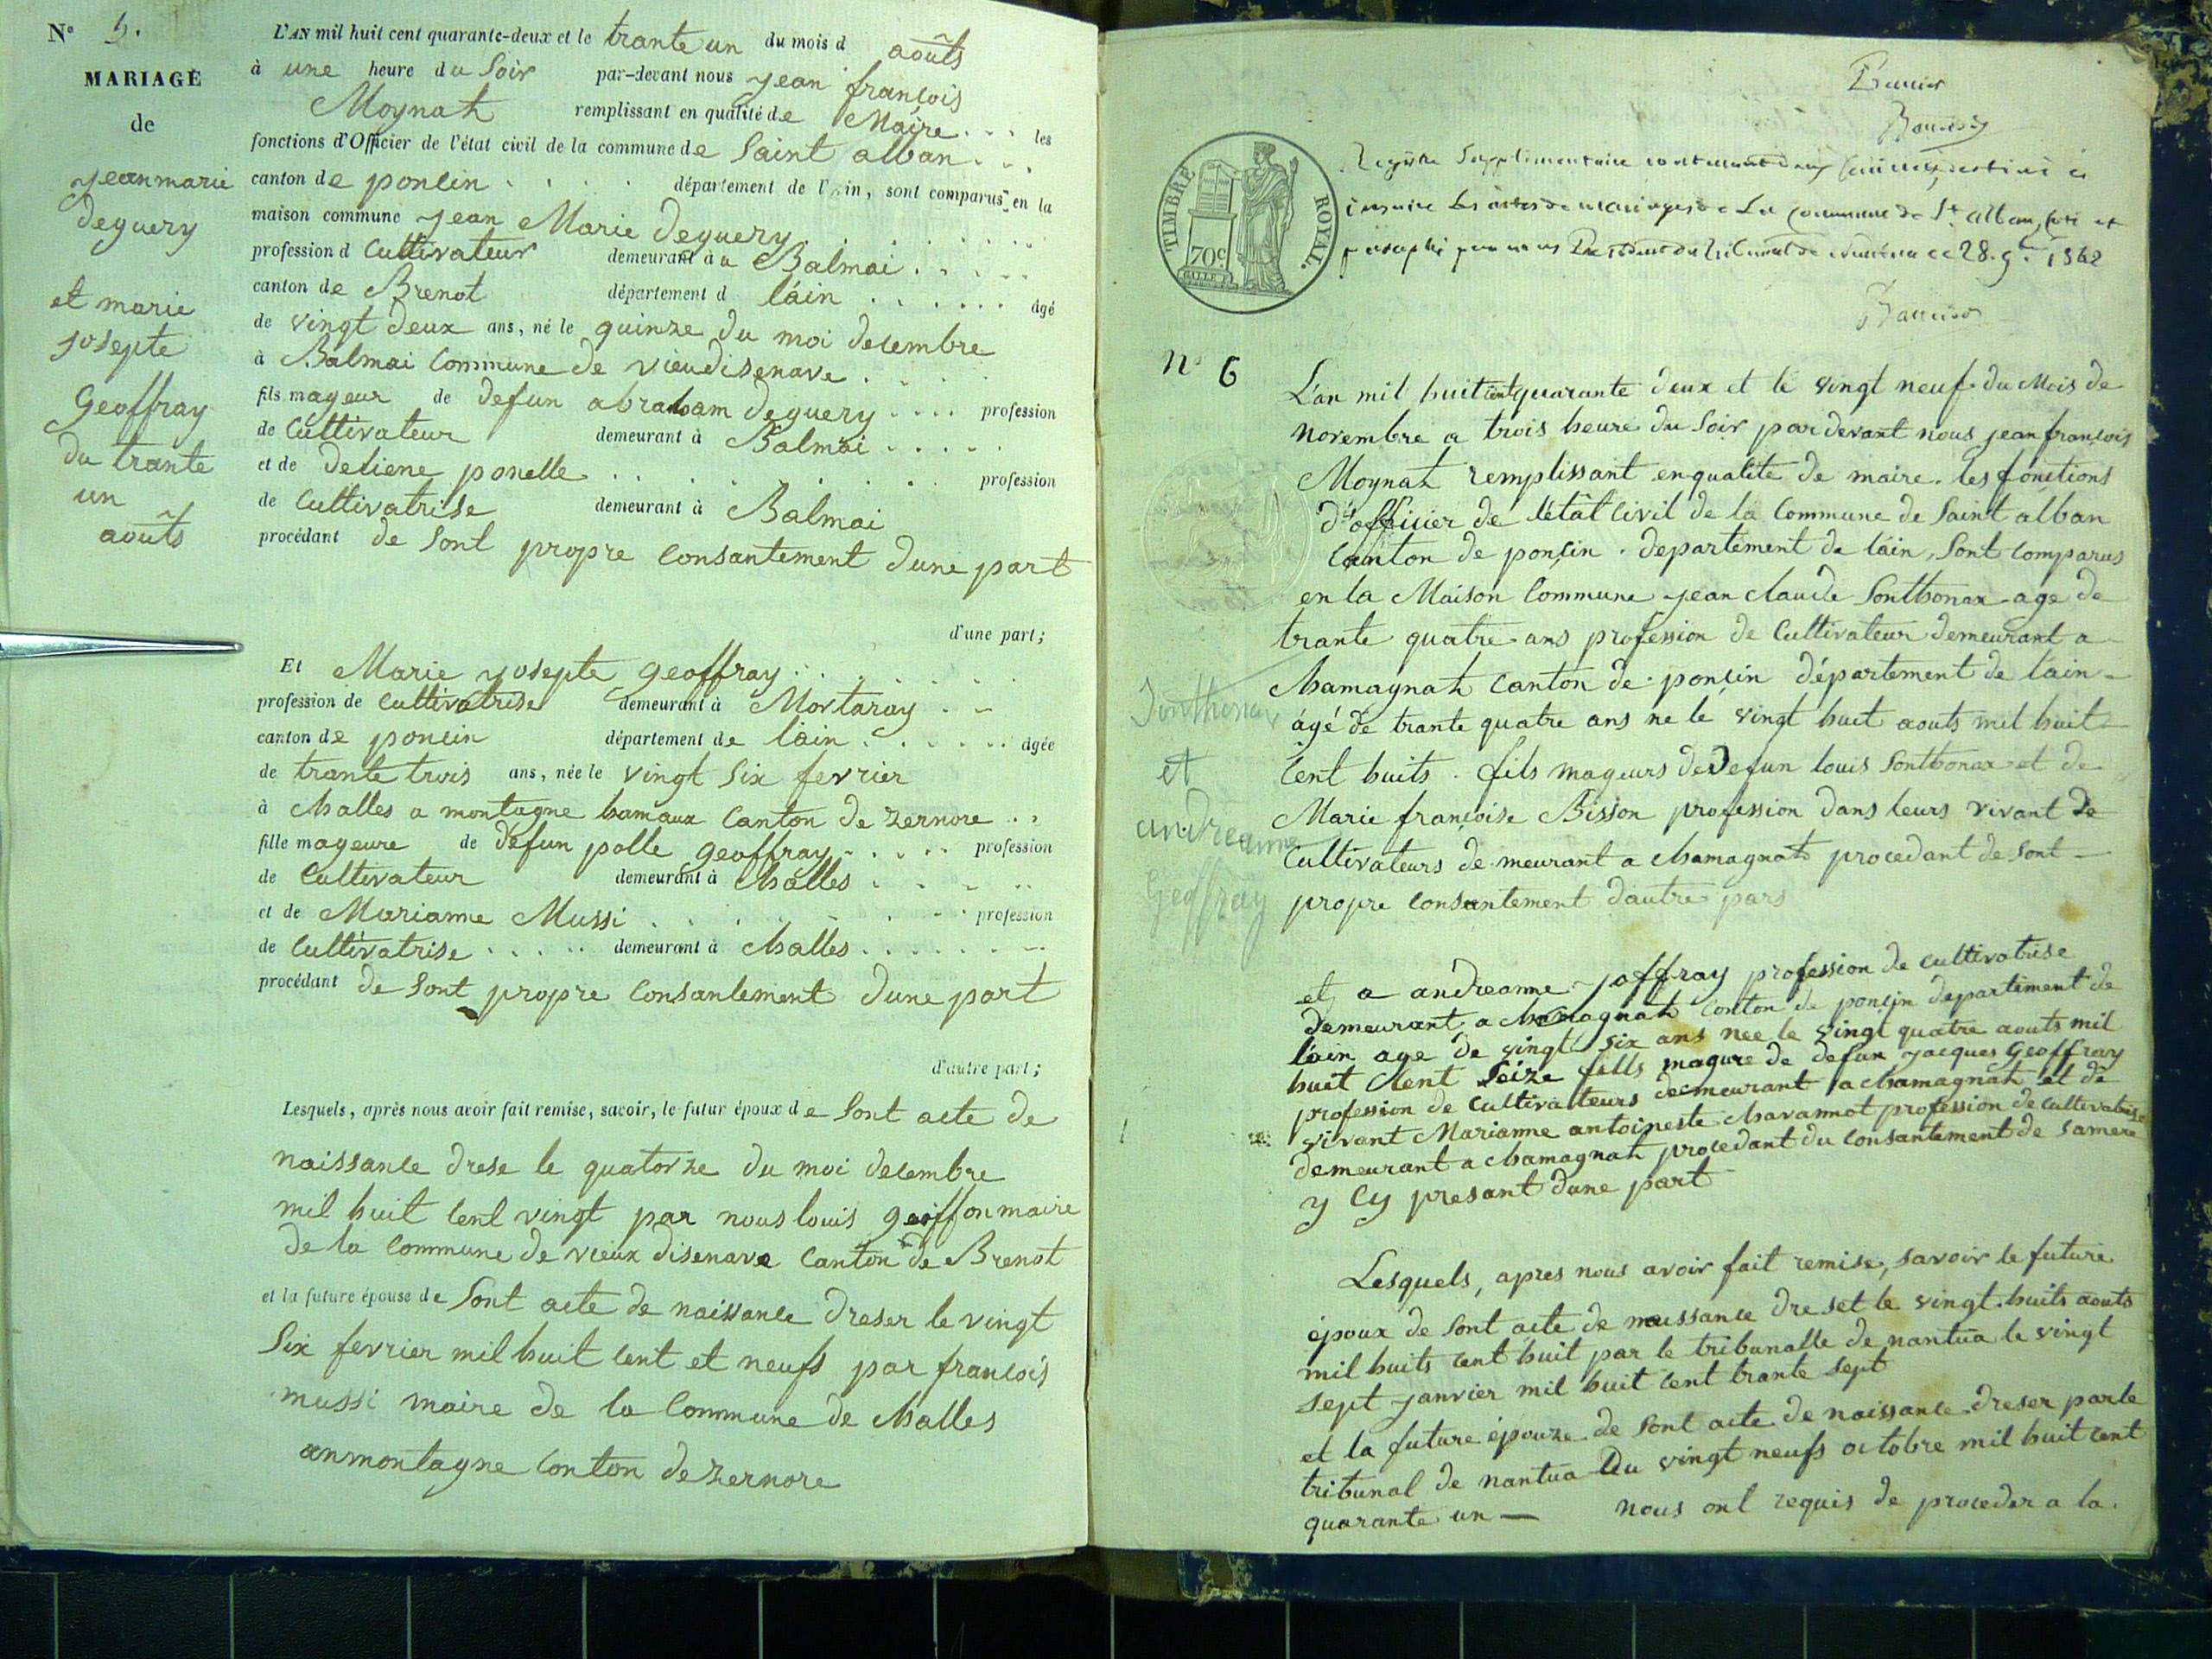 N° 5.
MARIAGE
de
yeanmarie
deguery
et marie
josepte
Geoffray
du trante
un
aoûts
L'AN mil huit cent quarante-deux et le trante un du mois d aoûts
à une heure du Soir par-devant nous yean françois
Moynat remplissant en qualité de Maire les
fonctions d'Officier de l'état civil de la commune de Saint alban
canton de poncin département de l'Ain, sont comparus en la
maison commune yean Marie Deguery
profession d Cultivateur demeurant à a Balmai
canton de Brenot département d láin âgé
de vingt deux ans, né le quinze du moi decembre
à Balmai Commune de vieudisenave
fils mayeur de defun abraham deguery profession
de Cultivateur demeurant à Balmai
et de deliene ponelle profession
de Cultivatrise demeurant à Balmai
procédant de Sont propre Consantement dune part
d'une part;
Et Marie yosepte geoffray
profession de Cultivatrise demeurant à Mortaray
canton de poncin département de láin âgée
de trante trois ans, née le vingt Six fevrier
à Challes a montagne hamaux Canton de zernore
fille mayeure de defun polle geoffray profession
de Cultivateur demeurant à Challes
et de Marianne Mussi profession
de Cultivatrise demeurant à Challes
procédant de Sont propre Consantement dune part
d'autre part;
Lesquels, après nous avoir fait remise, savoir, le futur époux de Sont acte de
naissance drese le quatorze du moi decembre
mil huit Cent vingt par nous louis geoiffon maire
de la Commune de vieux disenave Canton de Brenot
et la future épouse de Sont acte de naissance dreser le vingt
Six fevrier mil huit Cent et neufs par francois
mussi maire de la Commune de Challes
anmontagne Conton de zernore
TIMBRE ROYAL.
70c
Registre Supplementaire contenant deux feuilles destiné à
inscrire les actes de mariages de La commune de St alban, coté et
paraphé par nous President du tribunal de Nantua ce 28. 9bre 1842
n° 6
Sonthonax
et
andreanne
Geoffray
L'an mil huit cent quarante deux et le vingt neuf du Mois de
novembre a trois heure du Soir par devant nous jean françois
Moynat remplissant enqualite de maire. les fonctions
d'officier de létât Civil de la Commune de Saint alban
Canton de ponçin. departement de láin, Sont Comparus
en la Maison Commune yean Claude Sonthonax age de
trante quatre ans profession de Cultivateur demeurant a
Chamagnat Canton de ponçin département de láin
ágé de trante quatre ans ne le vingt huit aouts mil huit
Cent huits. fils mageurs de Defun louis Sonthonax et de
Marie françoise Bisson profession dans leurs vivant de
Cultivateurs de meurant a Chamagnat procedant de Sont
propre Consantement dautre pars
et a andreanne yoffray profession de cultivatrise
demeurant a Chamagnat Conton de ponçin departiment de
láin age de vingt Six ans nee le vingt quatre aouts mil
huit Cent Seize fills magure de defun yacques Geoffray
profession de Cultivatteurs demeurant a Chamagnat et de
vivant Marianne antoineste Chavannot profession de Cultivatrise
demeurant a Chamagnat procedant du Consantement de Samere
y Cy presant dune part
Lesquels, apres nous avoir fait remise, savoir le future
époux de Sont acte de naissance dreset le vingt. huits aouts
mil huits cent huit par le tribunalle de nantua le vingt
sept yanvier mil huit Cent trante Sept
et la future épouze de Sont acte de naissance dreser parle
tribunal de nantua Du vingt neufs octobre mil huit Cent
quarante un — nous ont requis de proceder a la